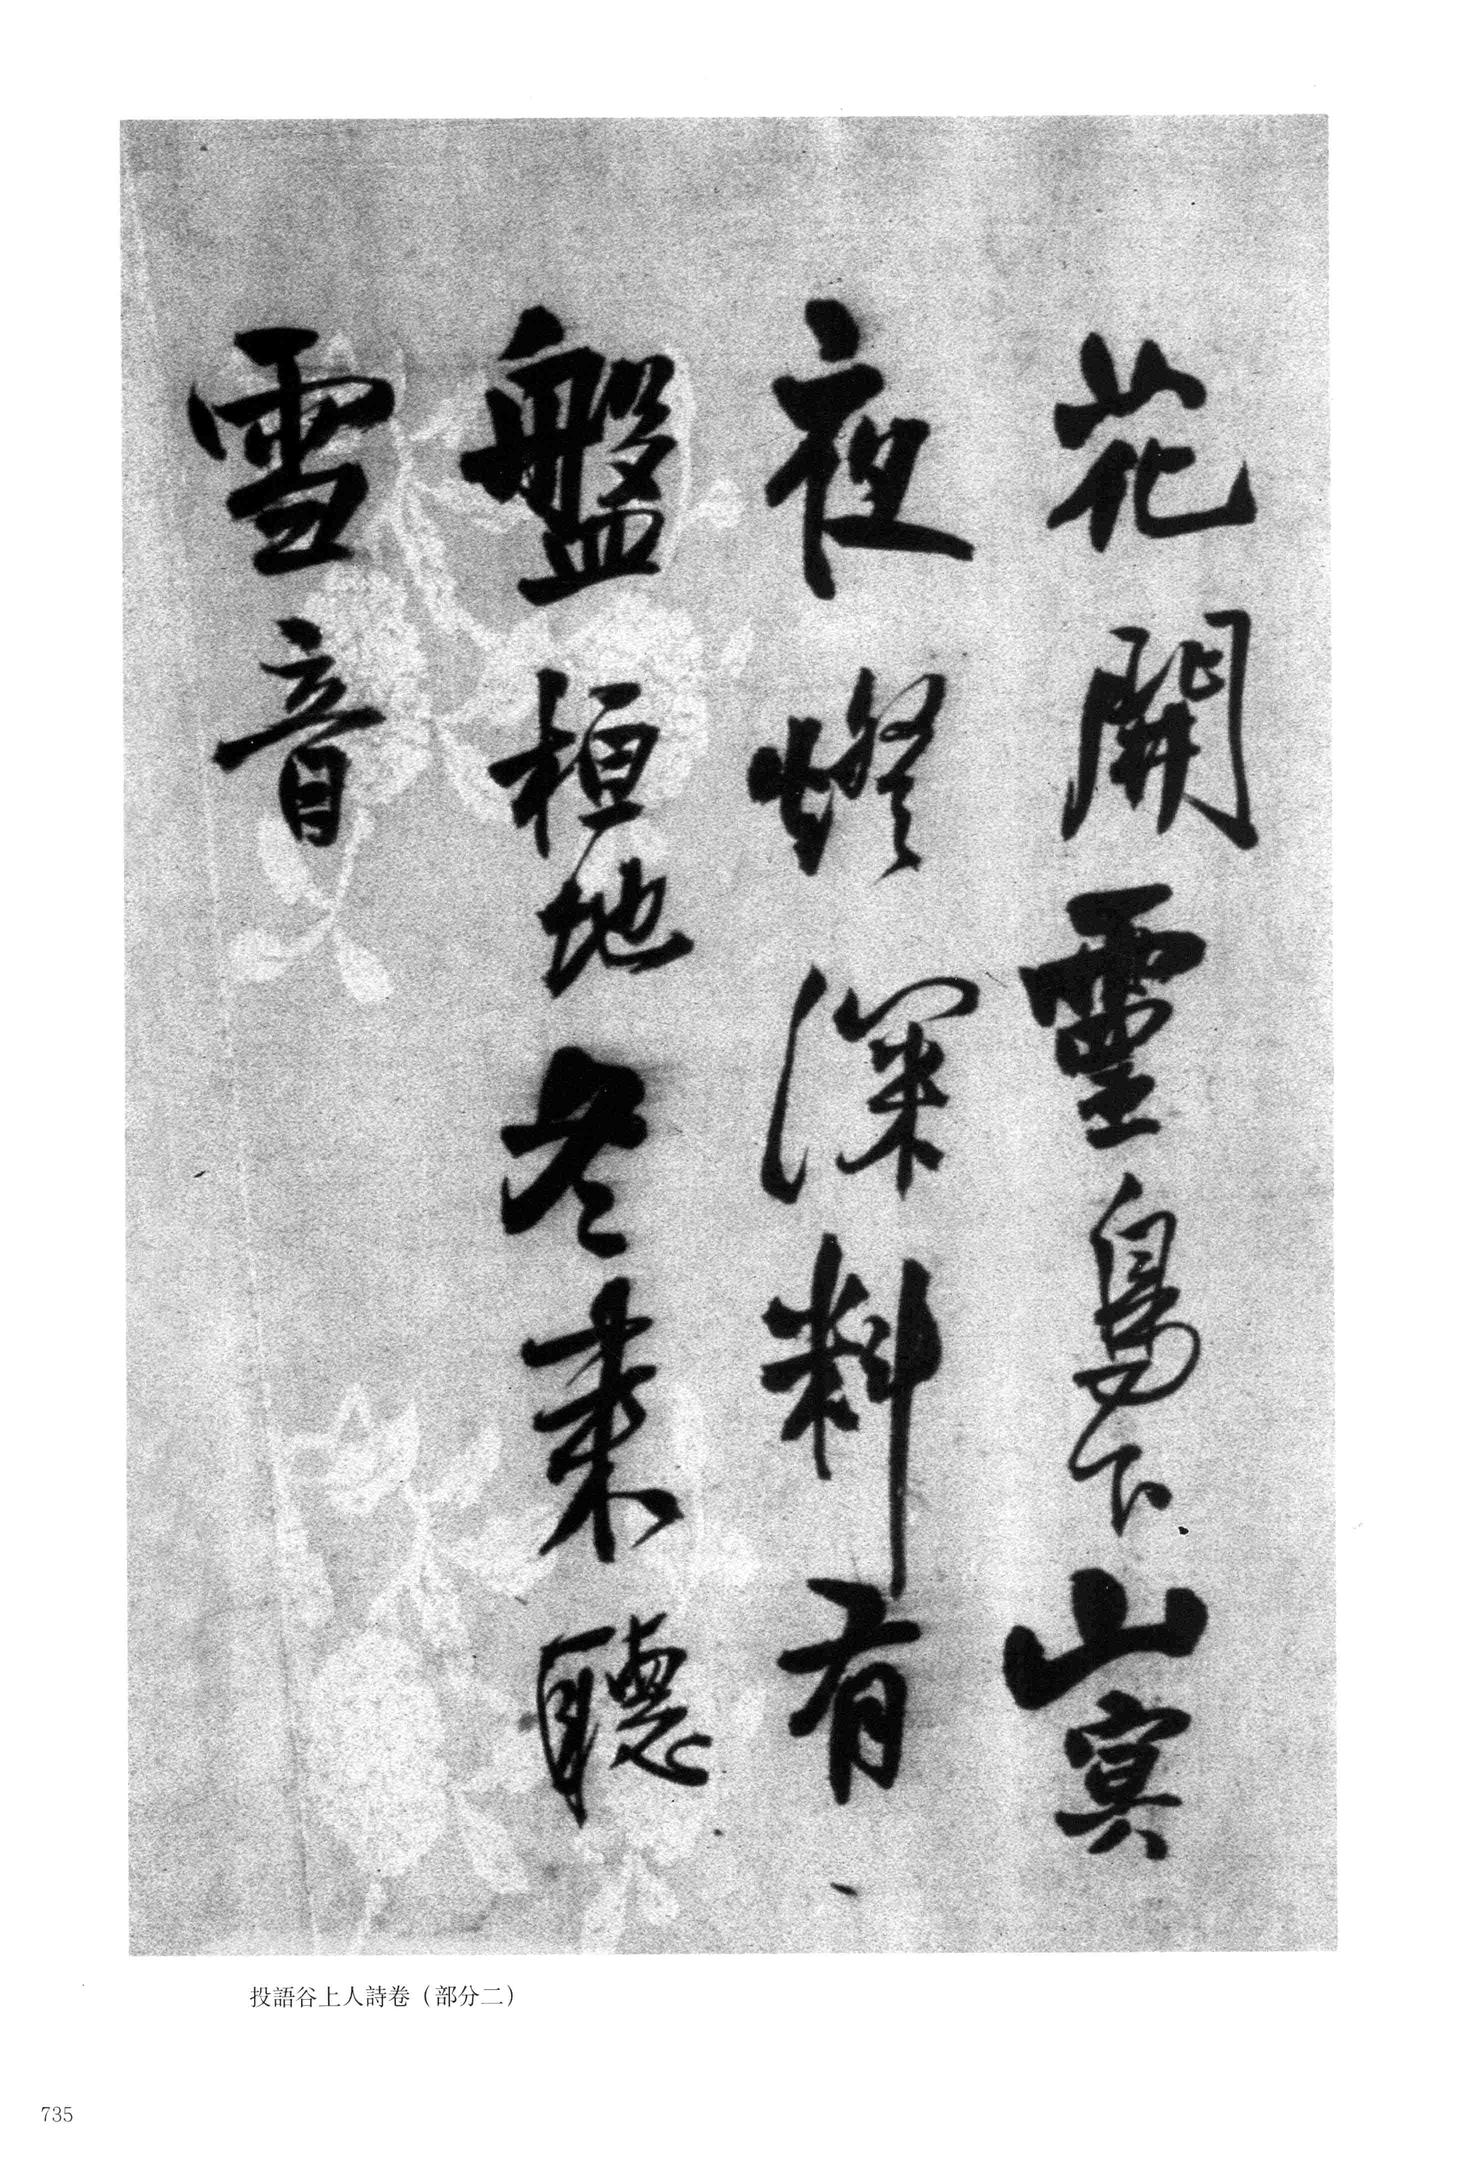 花開靈鳥下山寞
夜燈深料有
盤桓地冬來聽
雪音
投語谷上人詩卷（部分二）
735